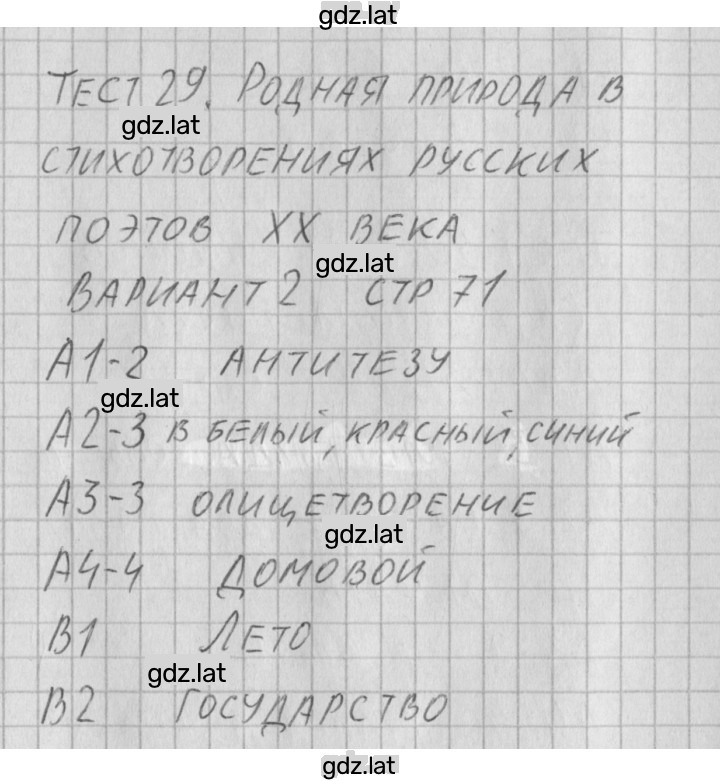 gdz.lat
Тест 29. Родная природа в
gdz.lat
стихотворениях русских
поэтов XX века
gdz.lat
Вариант 2 стр 71
А1-2 антитезу
gdz.lat
А2-3 в белый, красный, синий
А3-3 олицетворение
gdz.lat
А4-4 домовой
В1 Лето
gdz.lat
В2 Государство
gdz.lat